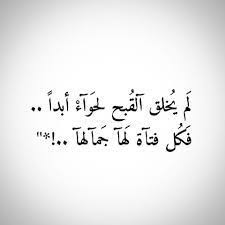 لَم يُخلق آلقُبح لحَوآءْ أبداً ..
فَكُل فتآة لَهآ جَمآلهآ ..!*"